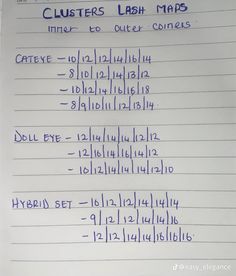 CLUSTERS LASH MAPS
inner to outer corners
CATEYE - 10|12|12|14|16|14
- 8|10|12|14|13|12
- 10|12|14|16|16|18
- 8|9|10|11|12|13|14
DOLL EYE - 12|14|14|14|12|12
- 12|16|14|16|14|12
- 10|12|14|14|14|12|10
HYBRID SET - 10|12|12|14|14|14
- 9|12|12|14|14|16
- 12|12|14|14|16|16|16
@easy_elegance